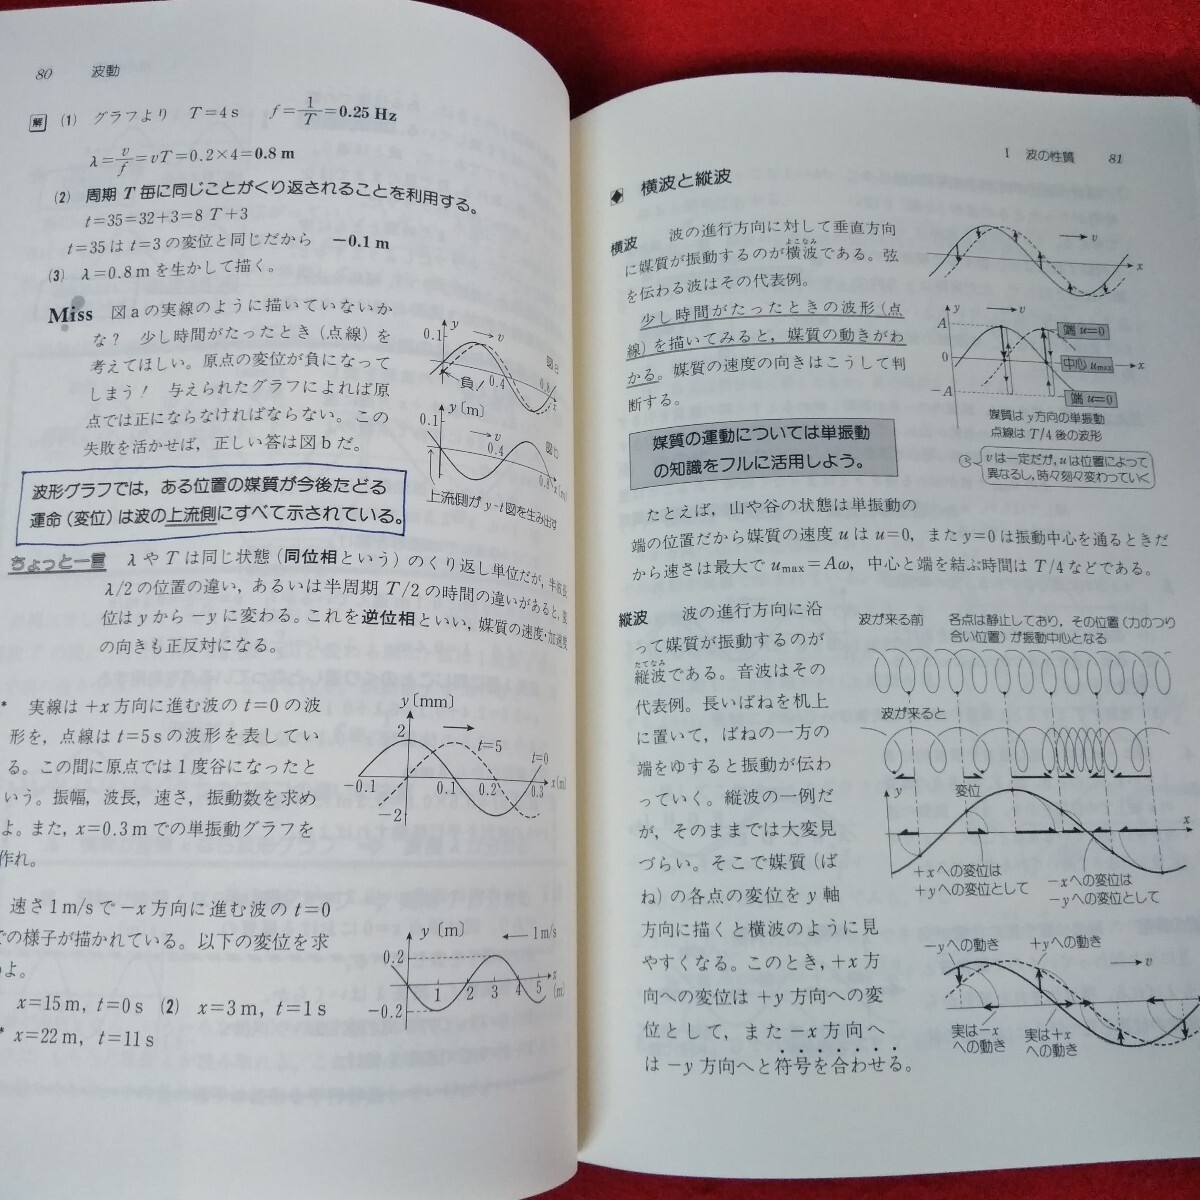 80 波動
解 (1) グラフより T=4s f=1/T=0.25 Hz
λ=v/f=vT=0.2×4=0.8 m
(2) 周期 T 毎に同じことがくり返されることを利用する。
t=35=32+3=8 T+3
t=35 は t=3 の変位と同じだから −0.1 m
(3) λ=0.8 m を生かして描く。
Miss 図 a の実線のように描いていないか
な? 少し時間がたったとき (点線) を
考えてほしい。原点の変位が負になって
しまう! 与えられたグラフによれば原
点では正にならなければならない。この
失敗を活かせば, 正しい答は図 b だ。
y
0.1
v
図a
負!
0.4
0.8
x
y〔m〕
0.1
v
0.4
図b
0.8
x〔m〕
上流側が y-t 図を生み出す
波形グラフでは, ある位置の媒質が今後たどる
運命 (変位) は波の上流側にすべて示されている。
ちょっと一言 λ や T は同じ状態 (同位相という) のくり返し単位だが, 半波長
λ/2 の位置の違い, あるいは半周期 T/2 の時間の違いがあると, 変
位は y から −y に変わる。これを逆位相といい, 媒質の速度・加速度
の向きも正反対になる。
* 実線は +x 方向に進む波の t=0 の波
形を, 点線は t=5 s の波形を表してい
る。この間に原点では 1 度谷になったと
いう。振幅, 波長, 速さ, 振動数を求め
よ。また, x=0.3 m での単振動グラフを
作れ。
y〔mm〕
2
t=5
t=0
−0.1
0.1
0.2
0.3
x〔m〕
−2
速さ 1 m/s で −x 方向に進む波の t=0
での様子が描かれている。以下の変位を求
めよ。
x=15 m, t=0 s (2) x=3 m, t=1 s
* x=22 m, t=11 s
y〔m〕
1 m/s
0.2
1 2 3 4 5
x
〔m〕
−0.2
I 波の性質 81
横波と縦波
横波 波の進行方向に対して垂直方向
に媒質が振動するのが横波である。弦
よこなみ
を伝わる波はその代表例。
少し時間がたったときの波形 (点
線) を描いてみると, 媒質の動きがわ
かる。媒質の速度の向きはこうして判
断する。
v
x
y
A
v
端 u=0
0
中心 umax
x
−A
端 u=0
媒質は y 方向の単振動
点線は T/4 後の波形
v は一定だが, u は位置によって
異なるし, 時々刻々変わっていく
媒質の運動については単振動
の知識をフルに活用しよう。
たとえば, 山や谷の状態は単振動の
端の位置だから媒質の速度 u は u=0, また y=0 は振動中心を通るときだ
から速さは最大で umax=Aω, 中心と端を結ぶ時間は T/4 などである。
縦波 波の進行方向に沿
って媒質が振動するのが
たてなみ
縦波である。音波はその
代表例。長いばねを机上
に置いて, ばねの一方の
端をゆすると振動が伝わ
っていく。縦波の一例だ
が, そのままでは大変見
づらい。そこで媒質 (ば
ね) の各点の変位を y 軸
方向に描くと横波のように見
やすくなる。このとき, +x 方
向への変位は +y 方向への変
位として, また −x 方向へ
は −y 方向へと符号を合わせる。
波が来る前 各点は静止しており, その位置 (力のつり
合い位置) が振動中心となる
波が来ると
変位
y
x
+x への変位は
+y への変位として
−x への変位は
−y への変位として
−y への動き
+y への動き
v
実は −x
への動き
実は +x
への動き